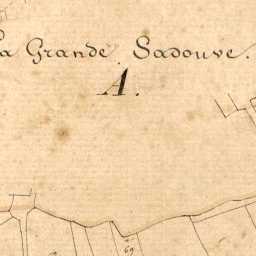 La Grande Sadouve.
A.
69